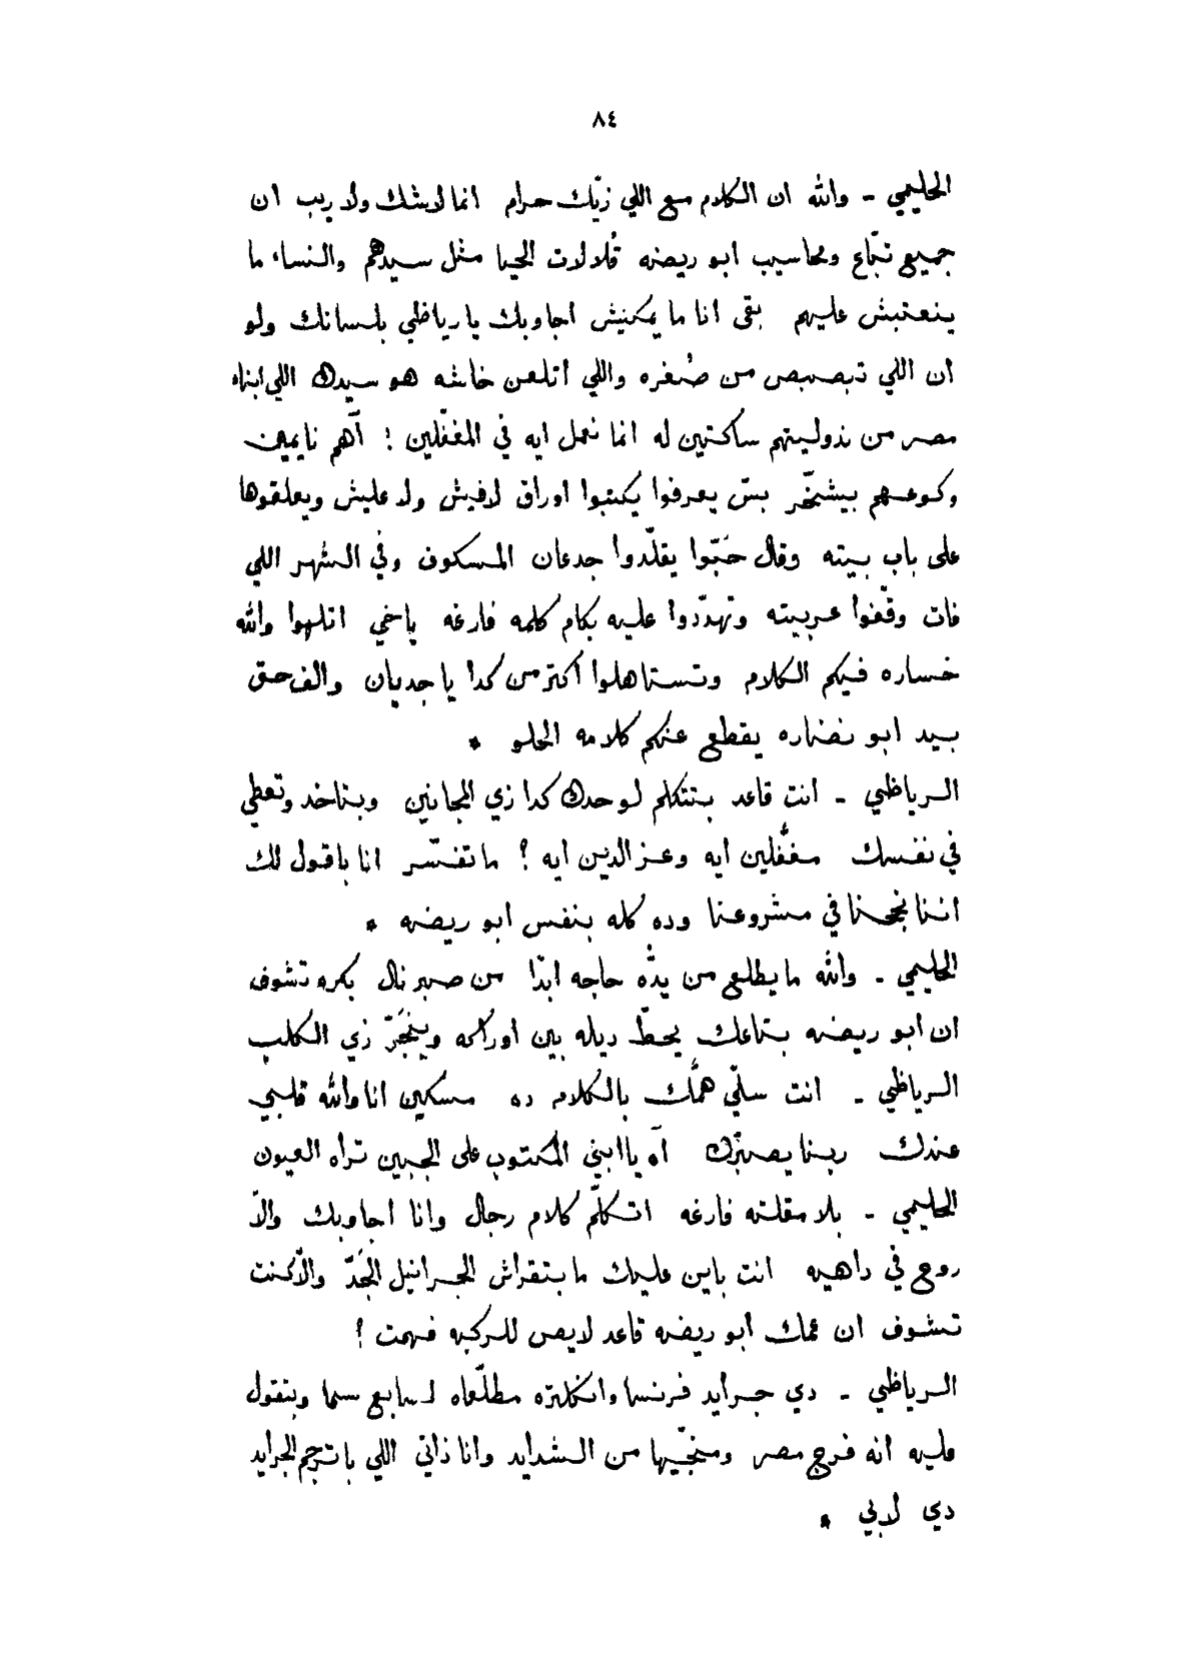 ٨٤
الحليمي - والله ان الكلام مع اللي زيّك حرام انما لاشك ولا ريب ان
جميع تبّاع ومحاسيب ابو ريضه قُلالات الحيا مثل سيدهم والنساء ما
ينعتبش عليهم بقى انا ما يمكنيش اجاوبك يا رياظي بلسانك ولو
ان اللي تبصبص من صُغره واللي اتلعن خاشه هو سيدك اللي ابناء
مصر من نذوليتهم ساكتين له انما نعمل ايه في المغفّلين ! آهم نايمين
وكوعهم بيشخّر بسّ يعرفوا يكتبوا اوراق لافيش ولا عليش ويعلقوها
على باب بيته وقال حَبّوا يقلّدوا جدعان المسكوف وفي الشهر اللي
فات وقّفوا عربيته وتهدّدوا عليه بكام كلمه فارغه ياخي اتلهوا والله
خساره فيكم الكلام وتستاهلوا اكتر من كدا يا جديان والف حق
بيد ابو نضاره يقطع عنكم كلامه الحلو *
الرياظي - انت قاعد بتتكلم لوحدك كدا زي المجانين وبتاخد وتعطي
في نفسك مغفّلين ايه وعز الدين ايه ؟ ما تفسّر انا باقول لك
اننا نجحنا في مشروعنا وده كله بنفس ابو ريضه *
الحليمي - والله ما يطلع من يدّه حاجه ابدًا من صبر نال بكره تشوف
ان ابو ريضه بتاعك يحطّ ديله بين اوراكه وينجَرّ زي الكلب
الرياظي - انت سلّي همّك بالكلام ده مسكين انا والله قلبي
عندك ربنا يصبّرك آه يا ابني المكتوب على الجبين تراه العيون
الحليمي - بلا مقلته فارغه اتكلّم كلام رجال وانا اجاوبك والاّ
روح في داهيه انت باين عليك ما بتقراش الجرانيل الجَدّ والاّ كنت
تشوف ان عمك ابو ريضه قاعد لايص للركبه فهمت ؟
الرياظي - دي جرايد فرنسا وانكلتره مطلّعاه لسابع سما وبتقول
عليه انه فرج مصر ومنجّيها من الشدايد وانا ذاتي اللي باترجم الجرايد
دي لابي *